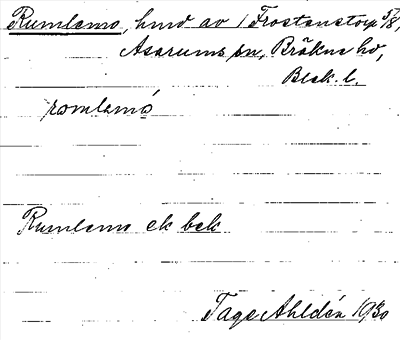 Rumlemo, hmd av 1 Frostenstorp 5/8,
Asarums sn, Bräkne hd,
Blek. l.
romlamó
Rumlemo ek bek
Tage Ahldén 1930